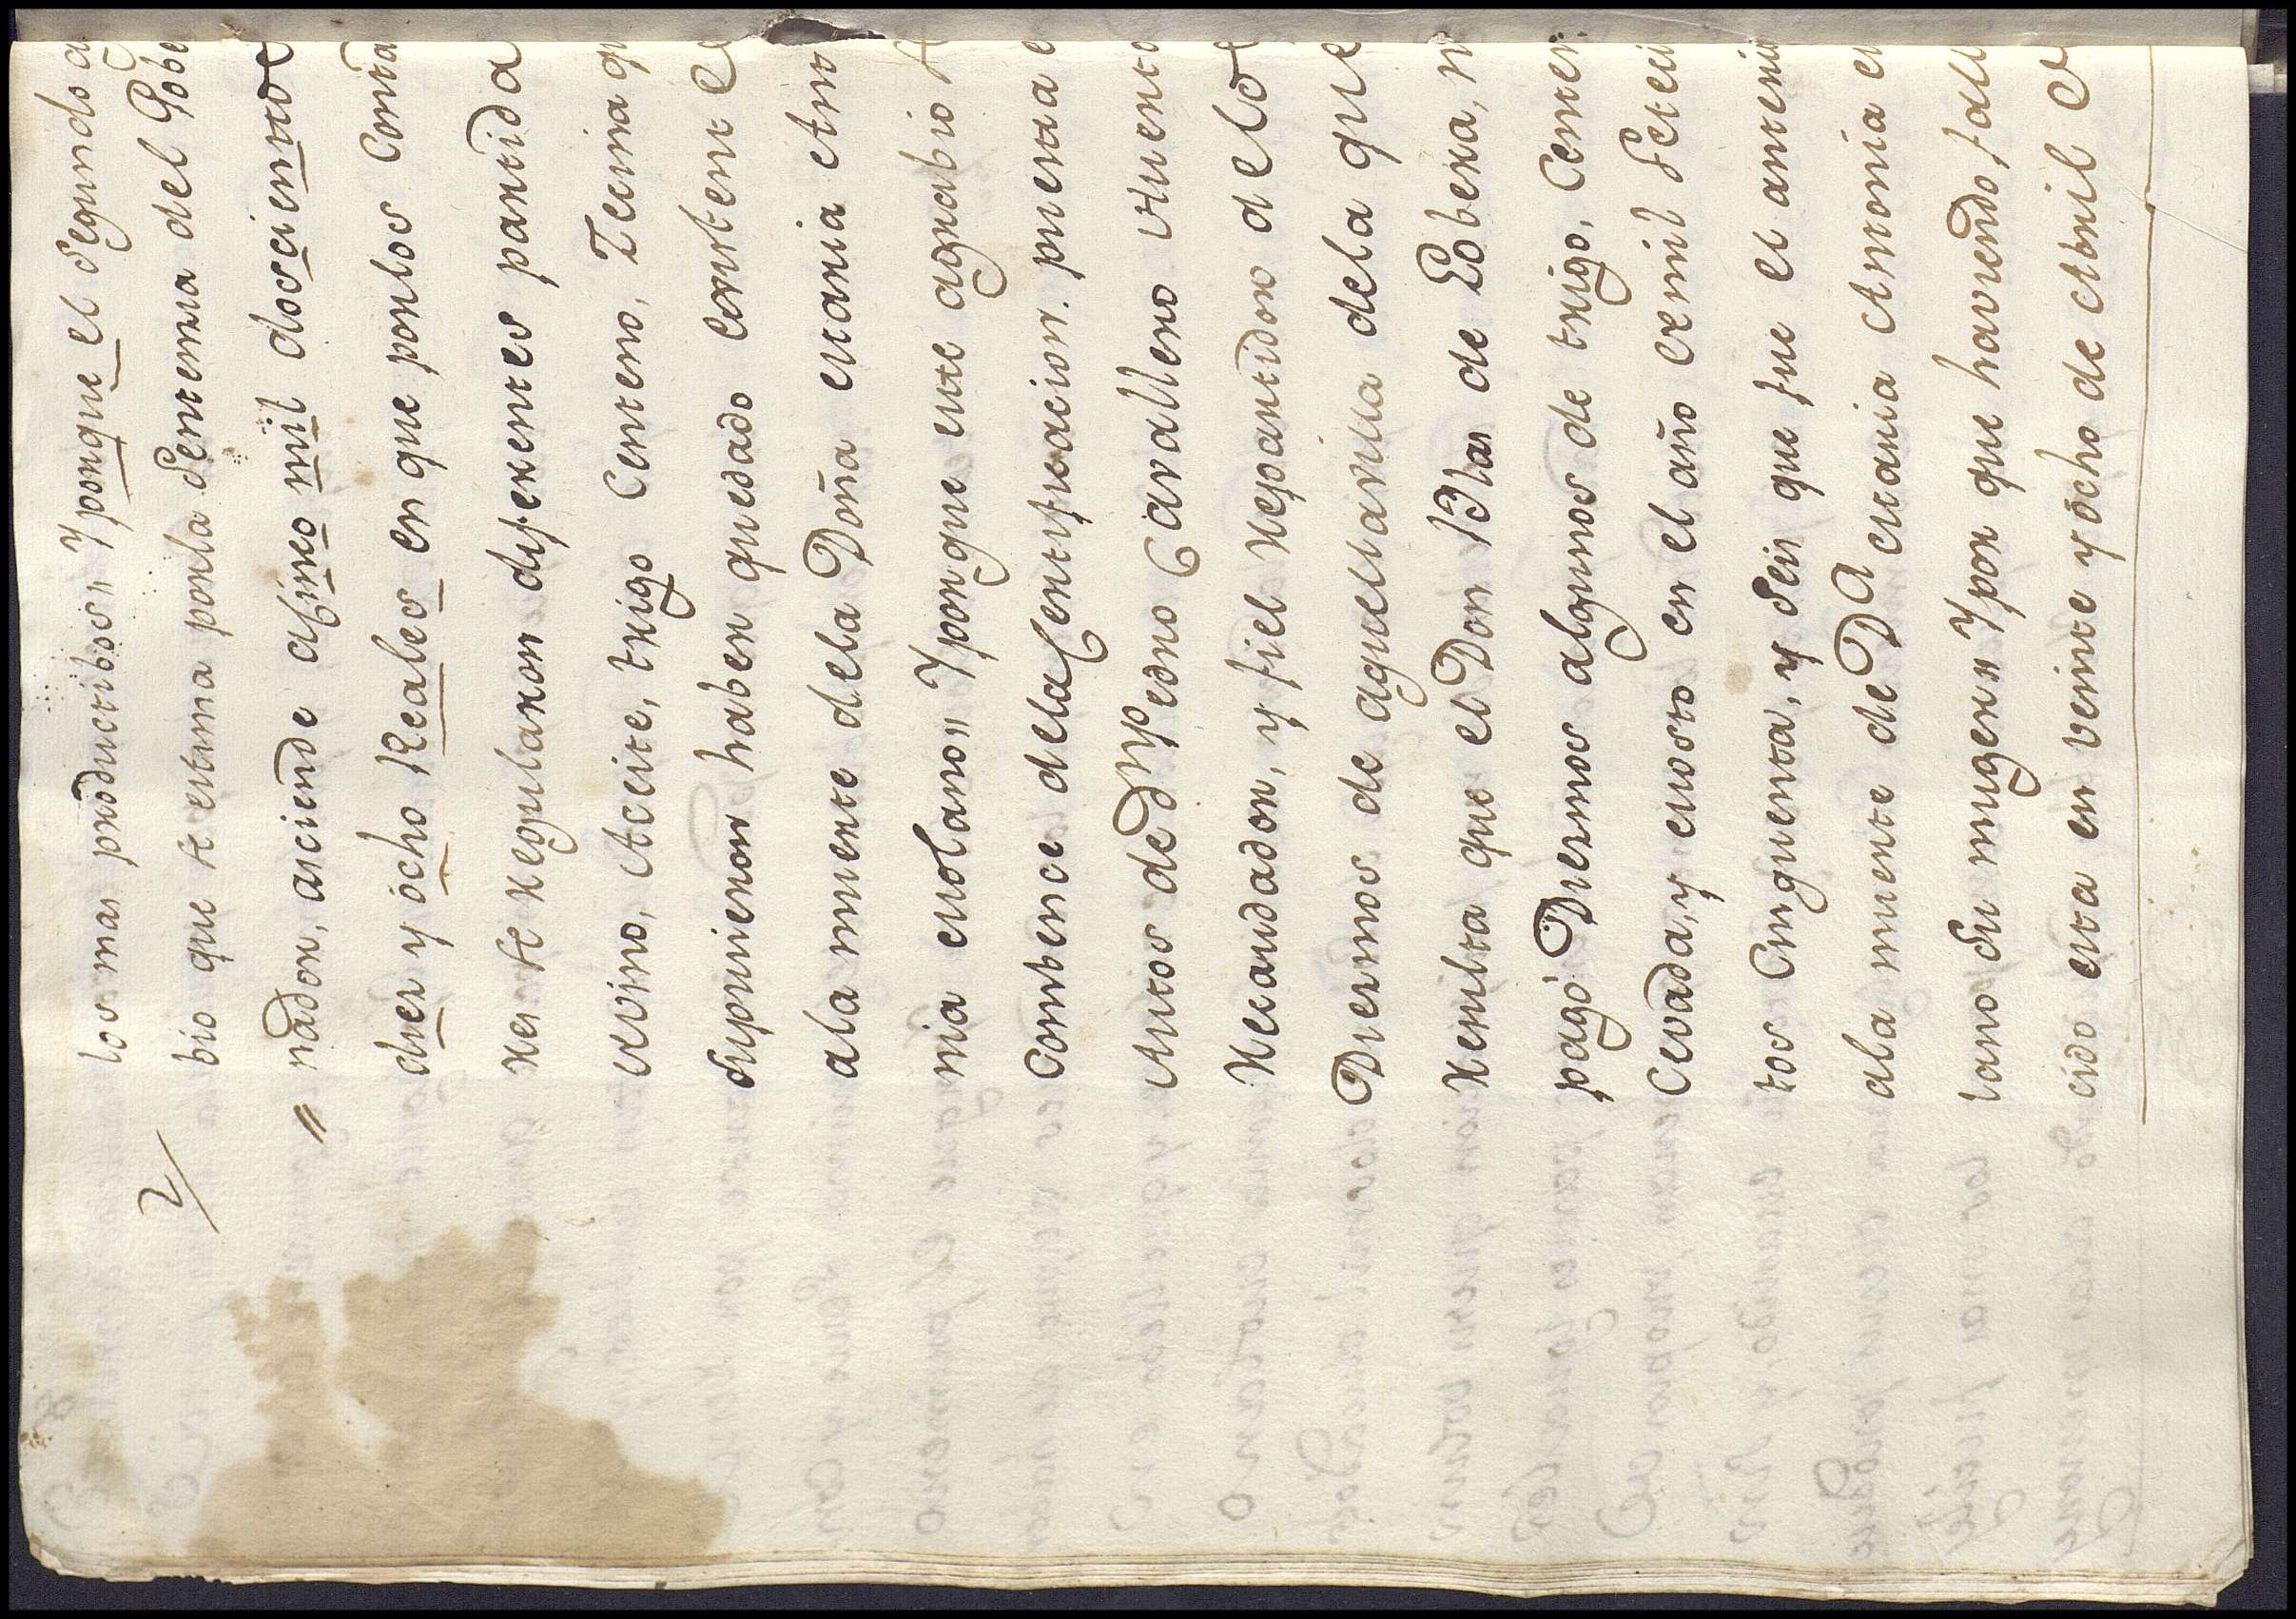 los mas productibos,, Y porque el Segundo a
2/
bio que se estima por la Sentenzia del Gobe
// nador, asciende a Cinco mil dosciento
dies y ocho Reales en que por los Conta
res se regularon diferentes partida
Vino, Aceite, trigo Centeno, Zecina q
Supusieron haber quedado existent
a la muerte de la Doña Maria Anto
nia Molano,, Y porque este agrabio s
Combence de la Certificacion. puesta e
Autos de Dn Pedro Cavallero Muento
Recaudador, y fiel Repartidor de lo
Diezmos de aquella Villa de la que
Resulta que el Don Blas de Lobera, n
pagó Diezmos algunos de trigo, Centen
Cevada, y mosto en el año de mil Setecie
tos Cinquenta, y Seis que fue el anteri
a la muerte de Da Maria Antonia M
lano Su muger,, Y por que haviendo fall
cido esta en veinte y ocho de Abril